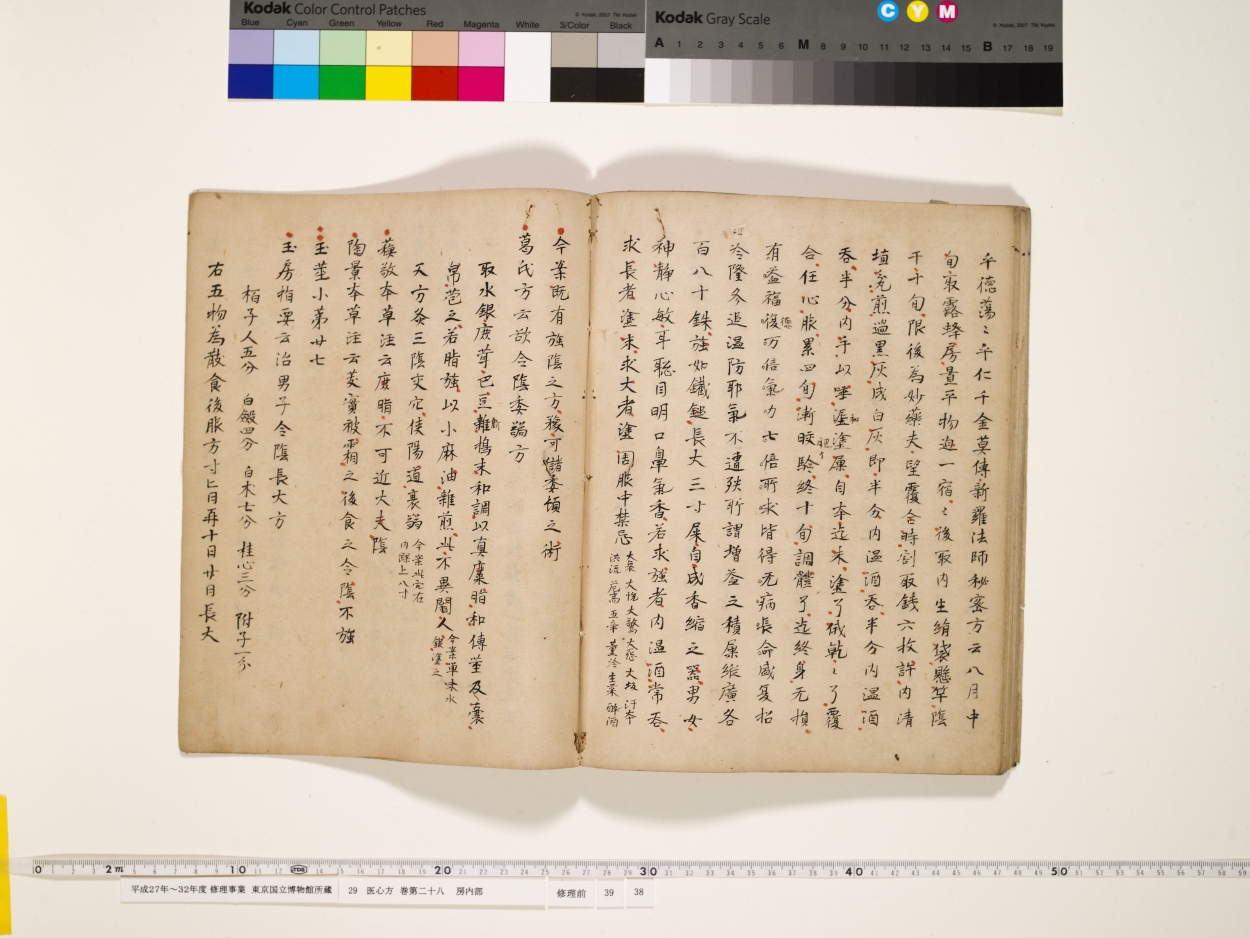 Kodak Color Control Patches
© Kodak, 2007 TM: Kodak
Blue Cyan Green Yellow Red Magenta White 3/Color Black
Kodak Gray Scale
C Y M
© Kodak, 2007 TM: Kodak
A 1 2 3 4 5 6 M 8 9 10 11 12 13 14 15 B 17 18 19
千德蕩〻千仁千金莫傳新羅法師秘密方云八月中
旬取露蜂房置平物迫一宿〻後取内生絹袋懸竿陰
干十旬限後為妙藥夫望覆合時割取錢六枚許内清
埴瓫煎過黑灰成白灰即半分内温酒吞半分内温酒
吞半分内手以唾塗屎自本迄末塗了俄乾〻了覆
合任心服累四旬漸驗終十旬調體了迄終身无損
有益福復万倍氣力七倍所求皆得无病長命盛夏招
冷隆冬追温防耶氣不遭殃所謂增益之積屎縱廣各
百八十銖強如鐵鎚長大三寸屎自成香縮之器男女
神靜心敏耳聡目明口鼻氣香若求強者内温酒常吞
求長者塗末求大者塗周服中禁忌
今案既有強陰之方豫可儲委頓之術
葛氏方云欲令陰委弱方
取水銀鹿茸巴豆雜擣末和調以真麋脂和傅莖及囊
帛苞之若脂強以小麻油雜煎此不異閹人 今案單末水
銀塗之
又方灸三陰交穴使陽道衰弱 今案此穴在
内踝上八寸
蘓敬本草注云鹿脂不可近丈夫陰
陶景本草注云芰實被霜之後食之令陰不強
玉莖小第廿七
玉房指要云治男子令陰長大方
栢子人五分 白斂四分 白朮七分 桂心三分 附子一分
右五物為散食後服方寸匕日再十日廿日長大
平成27年～32年度 修理事業 東京国立博物館所蔵 29 医心方 巻第二十八 房内部 修理前 39 38
0 2m 10 20 30 40 50